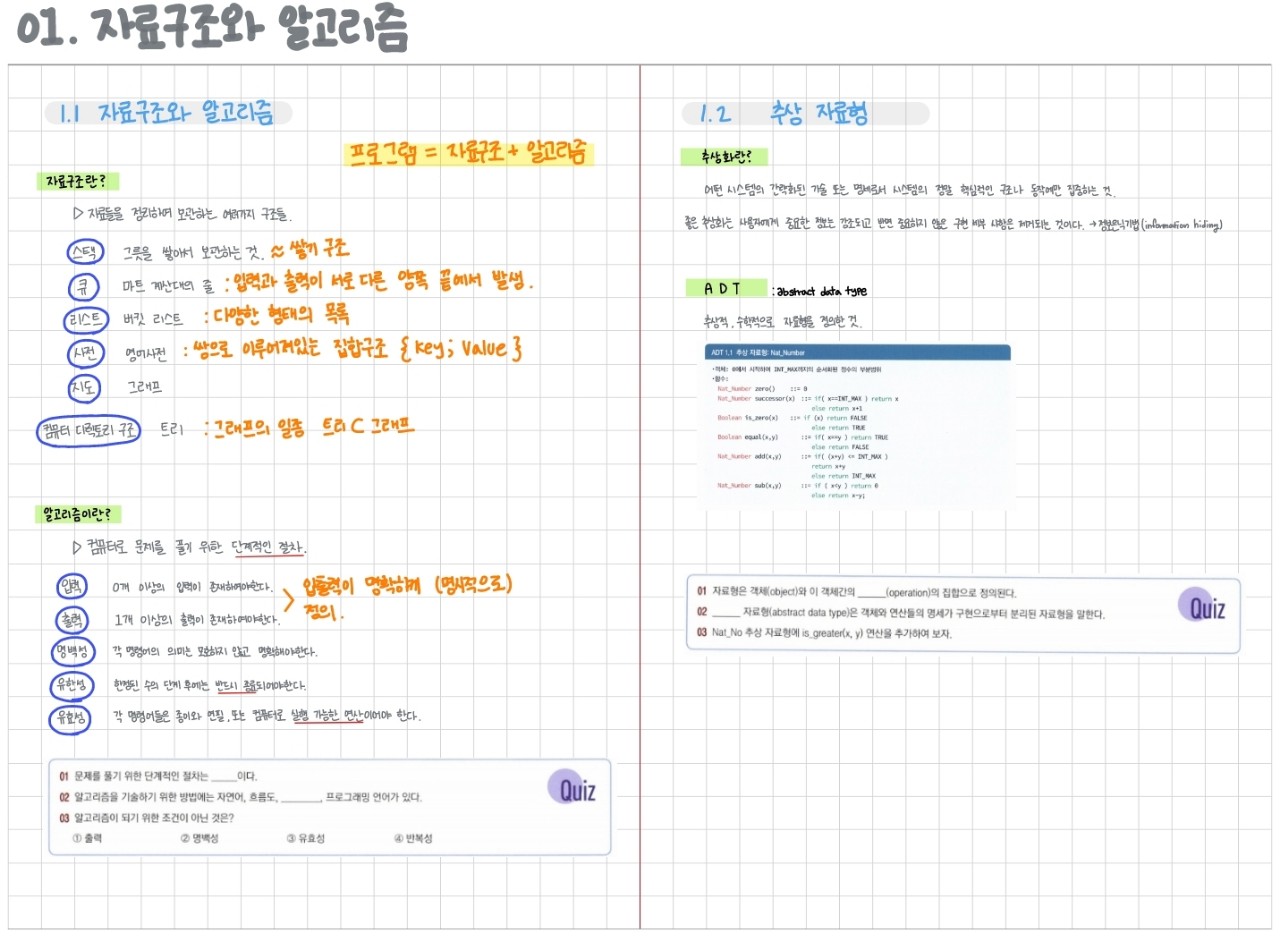 01. 자료구조와 알고리즘
1.1 자료구조와 알고리즘
프로그램 = 자료구조 + 알고리즘
자료구조란?
▷ 자료들을 정리하여 보관하는 여러가지 구조들.
스택 그릇을 쌓아서 보관하는 것. ≈ 쌓기 구조
큐 마트 계산대의 줄 : 입력과 출력이 서로 다른 양쪽 끝에서 발생.
리스트 버킷 리스트 : 다양한 형태의 목록
사전 영어사전 : 쌍으로 이루어져있는 집합구조 { Key ; Value }
지도 그래프
컴퓨터 디렉토리 구조 트리 : 그래프의 일종 트리 ⊂ 그래프
알고리즘이란?
▷ 컴퓨터로 문제를 풀기 위한 단계적인 절차.
입력 0개 이상의 입력이 존재하여야한다.
출력 1개 이상의 출력이 존재하여야한다.
> 입출력이 명확하게 (명시적으로)
정의.
명백성 각 명령어의 의미는 모호하지 않고 명확해야한다.
유한성 한정된 수의 단계 후에는 반드시 종료되어야한다.
유효성 각 명령어들은 종이와 연필, 또는 컴퓨터로 실행 가능한 연산이어야 한다.
Quiz
01 문제를 풀기 위한 단계적인 절차는 _____이다.
02 알고리즘을 기술하기 위한 방법에는 자연어, 흐름도, ________, 프로그래밍 언어가 있다.
03 알고리즘이 되기 위한 조건이 아닌 것은?
① 출력 ② 명백성 ③ 유효성 ④ 반복성
1.2 추상 자료형
추상화란?
어떤 시스템의 간략화된 기술 또는 명세로서 시스템의 정말 핵심적인 구조나 동작에만 집중하는 것.
좋은 추상화는 사용자에게 중요한 정보는 강조되고 반면 중요하지 않은 구현 세부 사항은 제거되는 것이다. → 정보은닉기법 (information hiding)
ADT : abstract data type
추상적, 수학적으로 자료형을 정의한 것.
ADT 1.1 추상 자료형: Nat_Number
•객체: 0에서 시작하여 INT_MAX까지의 순서화된 정수의 부분범위
•함수:
Nat_Number zero() ::= 0
Nat_Number successor(x) ::= if( x==INT_MAX ) return x
else return x+1
Boolean is_zero(x) ::= if (x) return FALSE
else return TRUE
Boolean equal(x,y) ::= if( x==y ) return TRUE
else return FALSE
Nat_Number add(x,y) ::= if( (x+y) <= INT_MAX )
return x+y
else return INT_MAX
Nat_Number sub(x,y) ::= if ( x<y ) return 0
else return x-y;
Quiz
01 자료형은 객체(object)와 이 객체간의 _____(operation)의 집합으로 정의된다.
02 _____ 자료형(abstract data type)은 객체와 연산들의 명세가 구현으로부터 분리된 자료형을 말한다.
03 Nat_No 추상 자료형에 is_greater(x, y) 연산을 추가하여 보자.